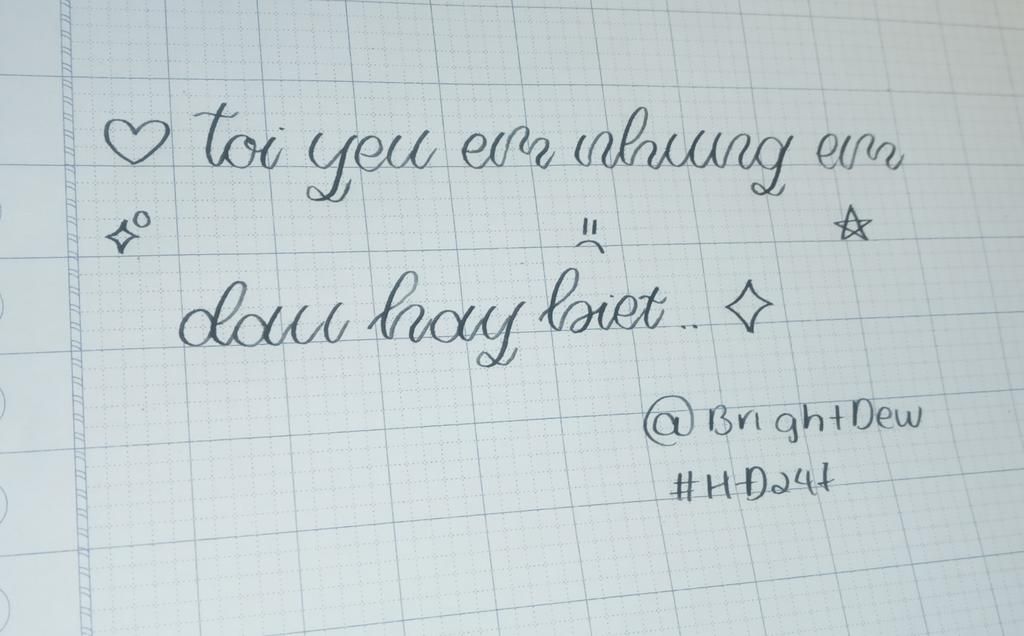 toi yeu em nhung em
dau hay biet..
@BrightDew
#HD24t